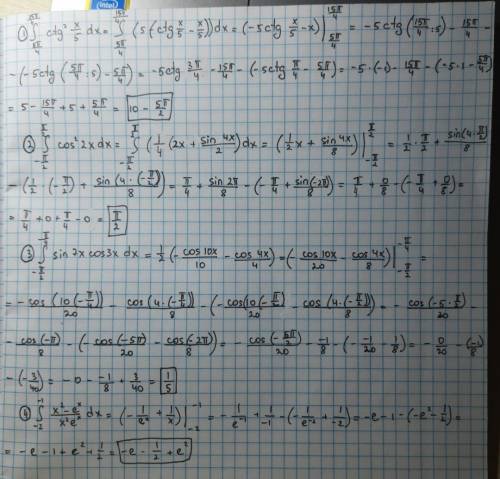 ① ∫_{5π/4}^{15π/4} ctg² x/5 dx = ∫_{5π/4}^{15π/4} (5(-ctg x/5 - x/5))dx = (-5ctg x/5 - x)|_{5π/4}^{15π/4} = -5ctg(15π/4 : 5) - 15π/4 -
-(-5ctg(5π/4 : 5) - 5π/4) = -5ctg 3π/4 - 15π/4 - (-5ctg π/4 - 5π/4) = -5·(-1) - 15π/4 - (-5·1 - 5π/4) =
= 5 - 15π/4 + 5 + 5π/4 = 10 - 5π/2
② ∫_{-π/2}^{π/2} cos² 2x dx = ∫_{-π/2}^{π/2} (1/4 (2x + sin 4x/2)dx = (1/2 x + sin 4x/8)|_{-π/2}^{π/2} = 1/2 · π/2 + sin(4·π/2)/8 -
-(1/2 · (-π/2) + sin(4·(-π/2))/8) = π/4 + sin 2π/8 - (-π/4 + sin(-2π)/8) = π/4 + 0/8 - (-π/4 + 0/8) =
= π/4 + 0 + π/4 - 0 = π/2
③ ∫_{-π/2}^{-π/4} sin 7x cos 3x dx = 1/2 (-cos 10x/10 - cos 4x/4) = (-cos 10x/20 - cos 4x/8)|_{-π/2}^{-π/4} =
= -cos(10(-π/4))/20 - cos(4·(-π/4))/8 - (-cos(10(-π/2))/20 - cos(4·(-π/2))/8) = -cos(-5·π/2)/20 -
- cos(-π)/8 - (-cos(-5π)/20 - cos(-2π)/8) = -cos(-5π/2)/20 - -1/8 - (- -1/20 - 1/8) = -0/20 - (-1/8) -
-(-3/40) = -0 - -1/8 + 3/40 = 1/5
④ ∫_{-2}^{-1} x²-eˣ/x²eˣ dx = (-1/eˣ + 1/x)|_{-2}^{-1} = -1/e⁻¹ + 1/-1 - (-1/e⁻² + 1/-2) = -e - 1 - (-e² - 1/2) =
= -e - 1 + e² + 1/2 = -e - 1/2 + e²